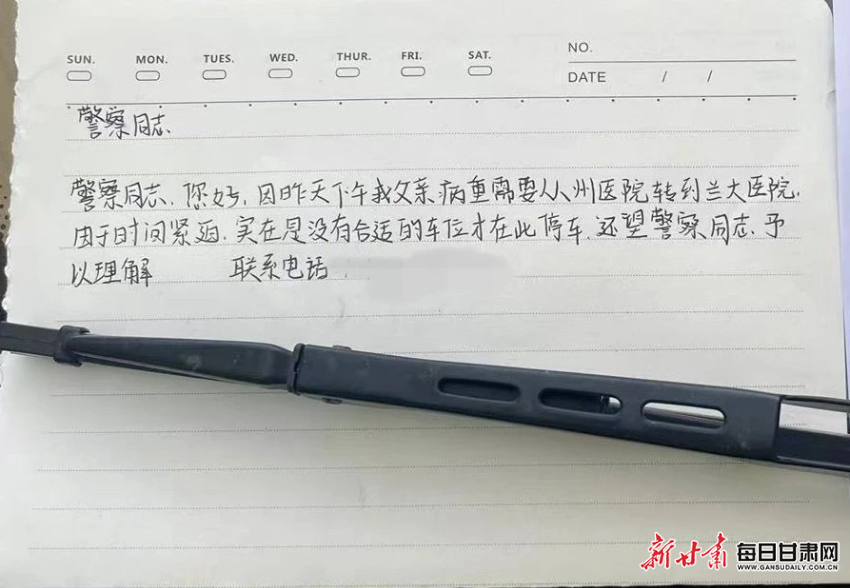 SUN. MON. TUES. WED. THUR. FRI. SAT.
NO.
DATE / /
警察同志
警察同志、您好,因昨天下午我父亲病重需要从州医院转到兰大医院.
由于时间紧迫.实在是没有合适的车位才在此停车.还望警察同志.予
以理解 联系电话
新甘肃 每日甘肃网
WWW.GANSUDAILY.COM.CN